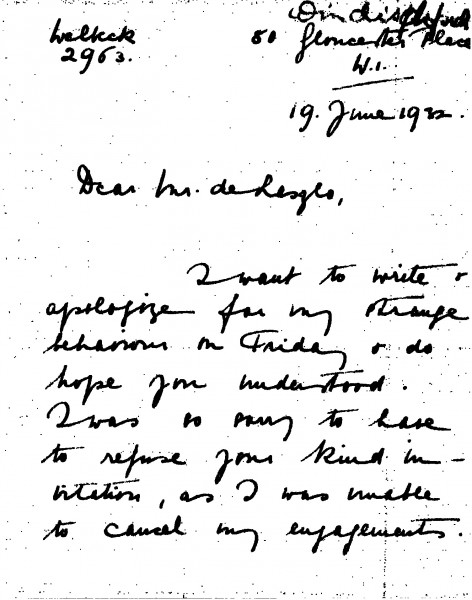 Welbeck
2963.
80 Gloucester Place
W.1.
19. June 1932.
Dear Mr. de Laszlo,
I want to write &
apologize for my strange
behaviour on Friday & do
hope you understood.
I was so sorry to have
to refuse your kind in-
vitation, as I was unable
to cancel my engagements.